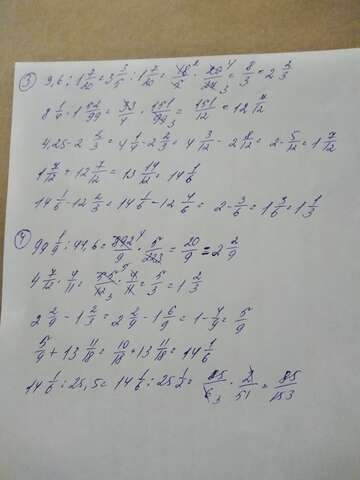 ③ 3,6 : 1 7/20 = 3 3/5 : 1 7/20 = 18/5 · 20/27 = 8/3 = 2 2/3
8 1/4 · 1 52/99 = 33/4 · 151/99 = 151/12 = 12 7/12
4,25 - 2 2/3 = 4 1/4 - 2 2/3 = 4 3/12 - 2 8/12 = 2 - 5/12 = 1 7/12
1 7/12 + 12 7/12 = 13 14/12 = 14 1/6
14 1/6 - 12 2/3 = 14 1/6 - 12 4/6 = 2 - 3/6 = 1 3/6 = 1 1/3
④ 99 1/9 : 44,6 = 892/9 · 5/223 = 20/9 = 2 2/9
4 7/12 · 4/11 = 55/12 · 4/11 = 5/3 = 1 2/3
2 2/9 - 1 2/3 = 2 2/9 - 1 6/9 = 1 - 4/9 = 5/9
5/9 + 13 11/18 = 10/18 + 13 11/18 = 14 1/6
14 1/6 : 25,5 = 14 1/6 : 25 1/2 = 85/6 · 2/51 = 85/153